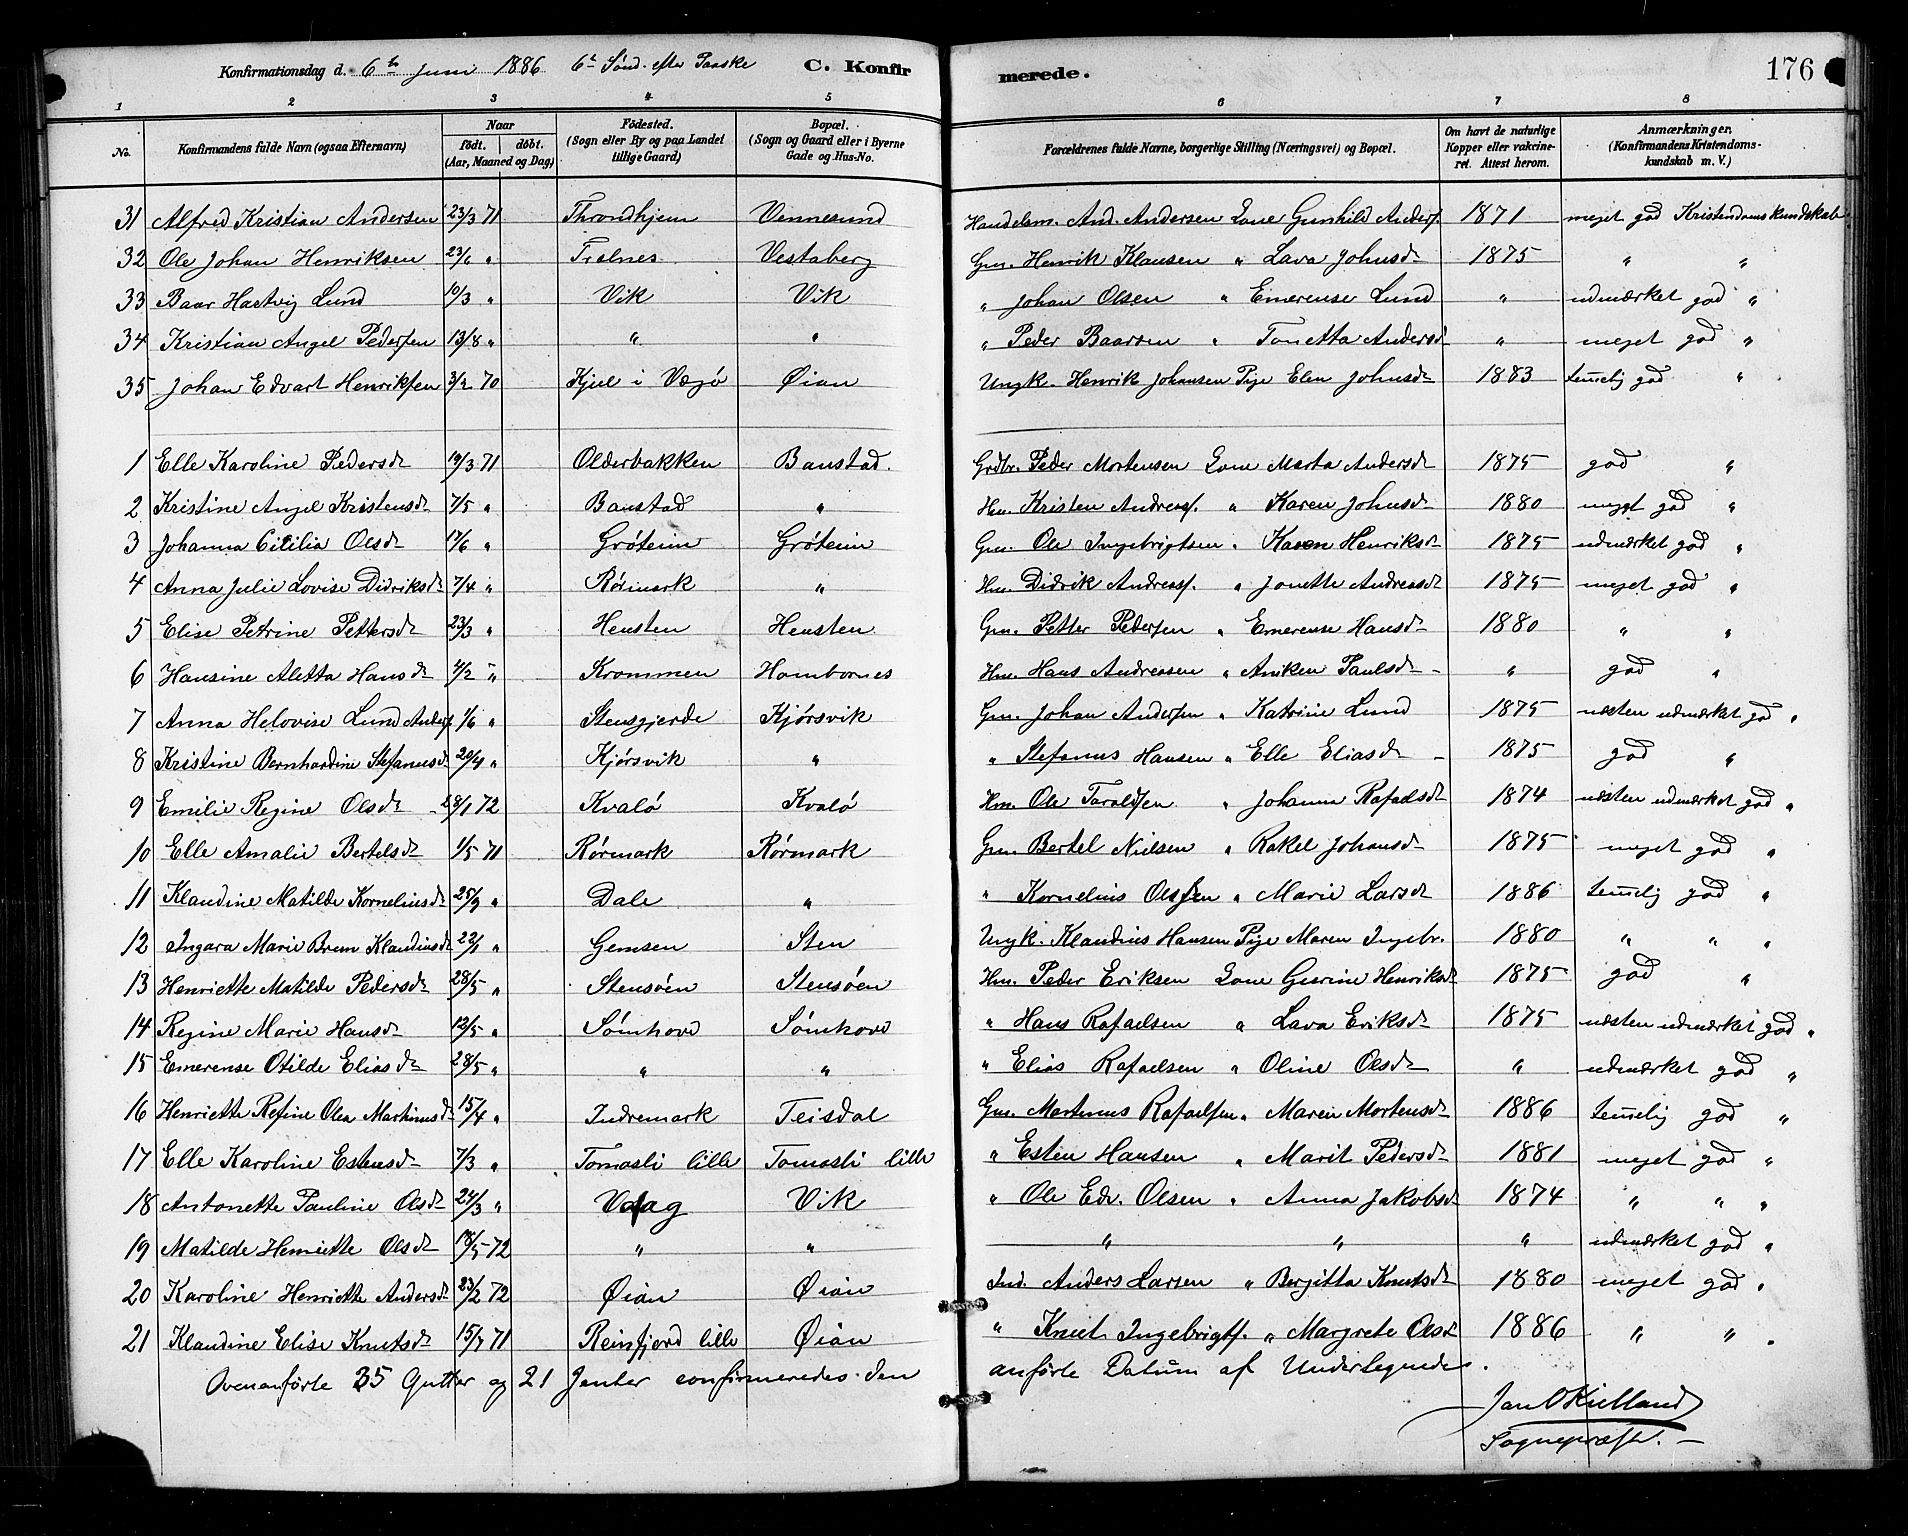 Konfirmationsdag d. 6te Juni 1886 6te Sönd. efter Paaske C. Konfirmerede. 176
1 2 3 4 5 6 7 8
No. Konfirmandens fulde Navn (ogsaa Efternavn) Naar födt. döbt. (Aar, Maaned og Dag) Födested. (Sogn eller By og paa Landet tillige Gaard) Bopæl. (Sogn og Gaard eller i Byerne Gade og Hus-No. Forældrenes fulde Navne, borgerlige Stilling (Næringsvei) og Bopæl. Om havt de naturlige Kopper eller vakcineret. Attest herom. Anmærkninger, (Konfirmandens Kristendomskundskab m. V.)
31 Alfred Kristian Andersen 23/3 71 Throndhjem Vennesund Handelsm. And. Andersen Kone Gunhild Anders. 1871 meget god Kristendomskundskab
32 Ole Johan Henriksen 23/6 " Trelnes Vestaberg Gm. Henrik Klausen " Lava Johnsdr 1875 " "
33 Baar Hartvig Lund 10/3 " Vik Vik " Johan Olsen " Emerense Lund " udmærket god "
34 Kristian Angel Pedersen 13/8 " " " " Peder Baarsen " Tonetta Andersd " meget god "
35 Johan Edvart Henriksen 3/2 70 Kjul i Vægö Öian Ungk. Henrik Johansen Pige Elen Johnsdr 1883 temelig god "
1 Elle Karoline Pedersdr 19/3 71 Olderbakken Banstad. Grdbr. Peder Mortensen Kone Marta Andersdr 1875 god "
2 Kristine Angel Kristensdr 7/5 " Banstad " Hm. Kristen Andreass. " Karen Johnsdr 1880 meget god "
3 Johanna Cicilia Olsdr 17/6 " Gröteim Gröteim Gm. Ole Ingebrigtsen " Karen Henriksdr 1875 udmærket god "
4 Anna Julie Lovise Didriksdr 7/4 " Rörmark " Hm. Didrik Andreass. " Jonette Andreasdr 1875 meget god "
5 Elise Petrine Pettersdr 23/3 " Hensten Hensten Gm. Petter Pedersen " Emerense Hansdr 1880 " "
6 Hansine Aletta Hansdr 4/2 " Krommen Hombornes Hm. Hans Andreasen " Aniken Paulsdr " god "
7 Anna Helovise Lund Anders. 1/6 " Stensgjerde Kjörsvik Gm. Johan Andersen " Katrine Lund 1875 næsten udmærket god "
8 Kristine Bernhardine Stefanusdr 20/4 " Kjörsvik " " Stefanus Hansen " Elle Eliasdr 1875 god "
9 Emilie Regine Olsdr 28/1 72 Kvalö Kvalö Hm. Ole Taraldsen " Johanna Rafaelsdr 1874 næsten udmærket god "
10 Elle Amalie Bertelsdr 1/5 71 Rörmark Rörmark Gm. Bertel Nielsen " Rakel Johansdr 1875 meget god "
11 Klaudine Matilde Korneliusdr 25/9 " Dale " " Kornelius Olsen " Marie Larsdr 1886 temelig god "
12 Ingara Marie Brem Klaudiusdr 22/1 " Gemsen Sten Ungk. Klaudius Hansen Pige Maren Ingebr. 1880 " " "
13 Henriette Matilde Pedersdr 28/5 " Stensöen Stensöen Hm. Peder Eriksen Kone Gurine Henriksdr 1875 god "
14 Regine Marie Hansdr 12/5 " Sömhovd Sömhovd " Hans Rafaelsen " Lava Eriksdr 1875 næsten udmærket god "
15 Emerense Otilde Eliasdr 28/5 " " " " Elias Rafaelsen " Oline Olsdr " udmærket god "
16 Henriette Refine Olea Martinusdr 15/4 " Indremark Teisdal Gm. Martinus Rafaelsen " Maren Mortensdr 1886 temelig god "
17 Elle Karoline Estensdr 7/3 " Tomasli lille Tomasli lille " Esten Hansen " Marit Pedersdr 1881 meget god "
18 Antonette Pauline Olsdr 24/3 " Vaag Vik " Ole Edv. Olsen " Anna Jakobsdr 1874 " " "
19 Matilde Henriette Olsdr 18/5 72 " " " " " udmærket god "
20 Karoline Henriette Andersdr 23/2 72 Öian Öian Ind. Anders Larsen " Bergitta Knutsdr 1880 meget god "
21 Klaudine Elise Knutsdr 15/7 71 Reinfjord lille Öian " Knut Ingebrigts. " Margrete Olsdr 1886 " " "
Ovenanförte 35 Gutter og 21 Jenter confirmeredes den anförte Datum af Undertegnede.
Jan O Kielland
Sognepræst.